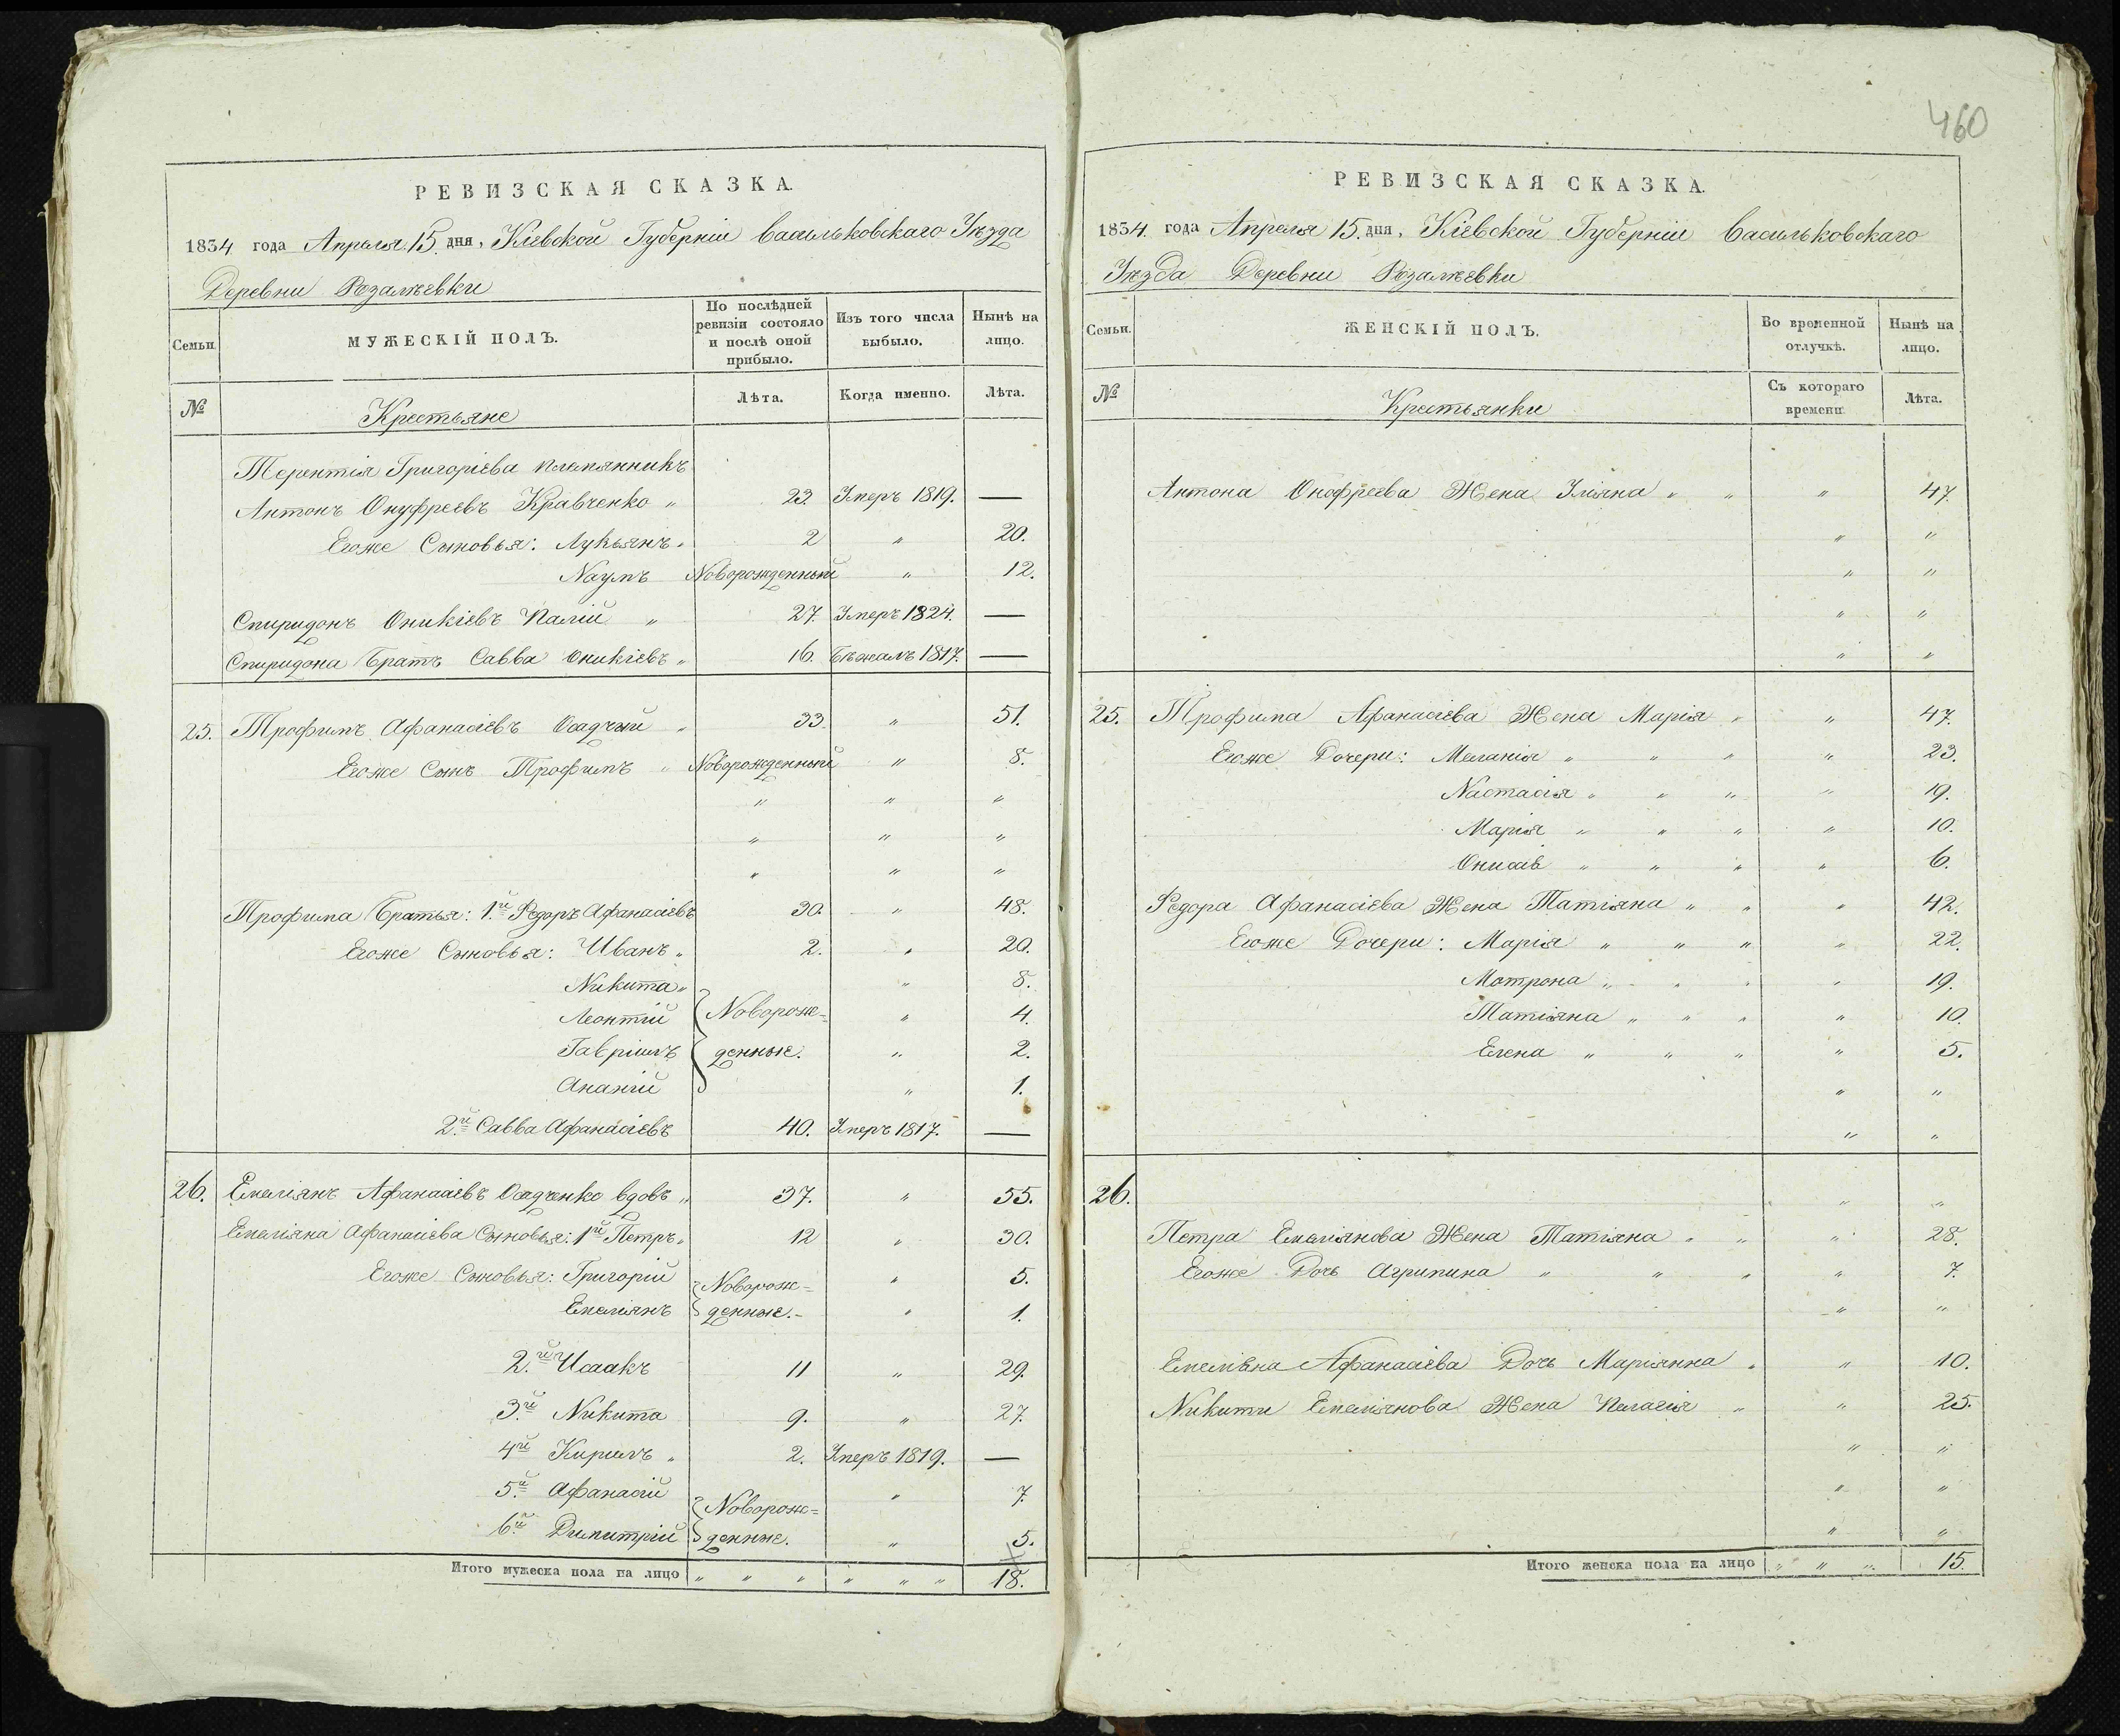 460
РЕВИЗСКАЯ СКАЗКА.
1834 года Апреля 15. дня, Кіевской Губерніи Васильковскаго Уѣзда
Деревни Розалѣевки
Семьи.
МУЖЕСКІЙ ПОЛЪ.
По послѣдней ревизіи состояло и послѣ оной прибыло.
Изъ того числа выбыло.
Нынѣ на лицо.
№
Крестьяне
Лѣта.
Когда именно.
Лѣта.
Терентія Григоріева племянникъ
Антонъ Онуфреевъ Кравченко „ 23. Умеръ 1819. —
Егоже Сыновья: Лукьянъ „ 2 „ 20.
Наумъ Новорожденный „ 12.
Спиридонъ Оникіевъ Палій „ 27. Умеръ 1824. —
Спиридона Братъ Савва Оникіевъ „ 16. Бѣжалъ 1817. —
25. Трофимъ Афанасіевъ Осадчий „ 33. „ 51.
Егоже Сынъ Трофимъ „ Новорожденный „ 8.
„ „ „
„ „ „
„ „ „
Трофима Братья: 1.й Федоръ Афанасіевъ 30. „ 48.
Егоже Сыновья: Иванъ „ 2. „ 20.
Никита „ „ 8.
Леонтій Новорож= „ 4.
Гавріилъ денные. „ 2.
Ананій „ 1.
2.й Савва Афанасіевъ 40. Умеръ 1817. —
26. Емеліянъ Афанасіевъ Осадченко вдовъ „ 37. „ 55.
Емеліяна Афанасіева Сыновья: 1й Петръ „ 12 „ 30.
Егоже Сыновья: Григорій Новорож= „ 5.
Емеліянъ денные.- „ 1.
2.й Исаакъ 11 „ 29.
3.й Никита 9. „ 27.
4й Кирилъ „ 2. Умеръ 1819. —
5.й Афанасій Новорож= „ 7.
6.й Димитрій денные. „ 5.
Итого мужеска пола на лицо „ „ „ „ „ „ 18.
РЕВИЗСКАЯ СКАЗКА.
1834. года Апреля 15. дня, Кіевской Губерніи Васильковскаго
Уѣзда Деревни Розалѣевки
Семьи.
ЖЕНСКІЙ ПОЛЪ.
Во временной отлучкѣ.
Нынѣ на лицо.
№
Крестьянки
Съ котораго времени.
Лѣта.
Антона Онофреева Жена Уліяна „ „ „ 47.
„ „
„ „
„ „
„ „
25. Трофима Афанасіева Жена Марія „ „ 47.
Егоже Дочери: Меланія „ „ „ „ 23.
Настасія „ „ „ „ 19.
Марія „ „ „ „ 10.
Онисія „ „ „ „ 6.
Федора Афанасіева Жена Татіяна „ „ „ 42.
Егоже Дочери: Марія „ „ „ „ 22.
Мотрона „ „ „ „ 19.
Татіяна „ „ „ „ 10.
Елена „ „ „ „ 5.
„ „
„ „
26. „ „
Петра Емеліянова Жена Татіяна „ „ „ 28.
Егоже Дочь Агрипина „ „ „ „ 7.
„ „
Емеліяна Афанасіева Дочь Маріянна „ „ 10.
Никити Емеліянова Жена Пелагія „ „ 25.
„ „
„ „
„ „
Итого женска пола на лицо „ „ „ 15.